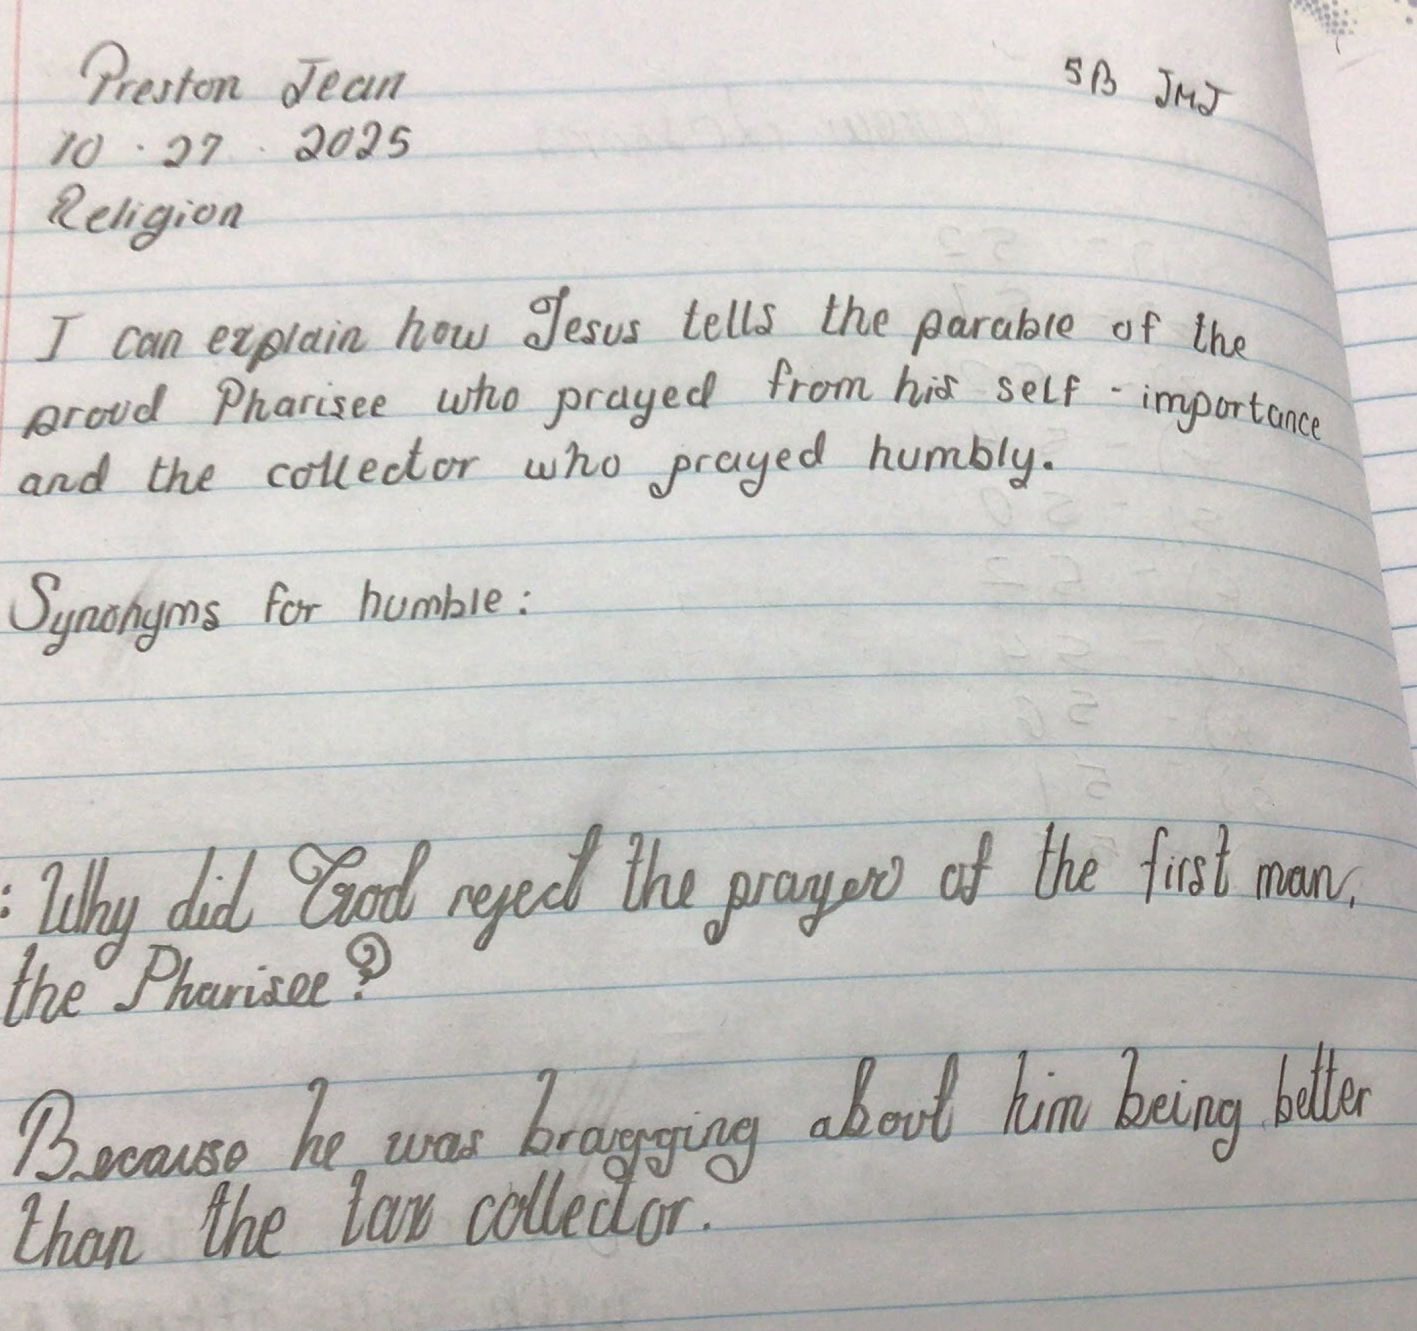 Preston Jean 5B JMJ
10 . 27 . 2025
Religion
I can explain how Jesus tells the parable of the
proud Pharisee who prayed from his self - importance
and the collector who prayed humbly.
Synonyms for humble:
: Why did God reject the prayer of the first man,
the Pharisee?
Because he was bragging about him being better
than the tax collector.